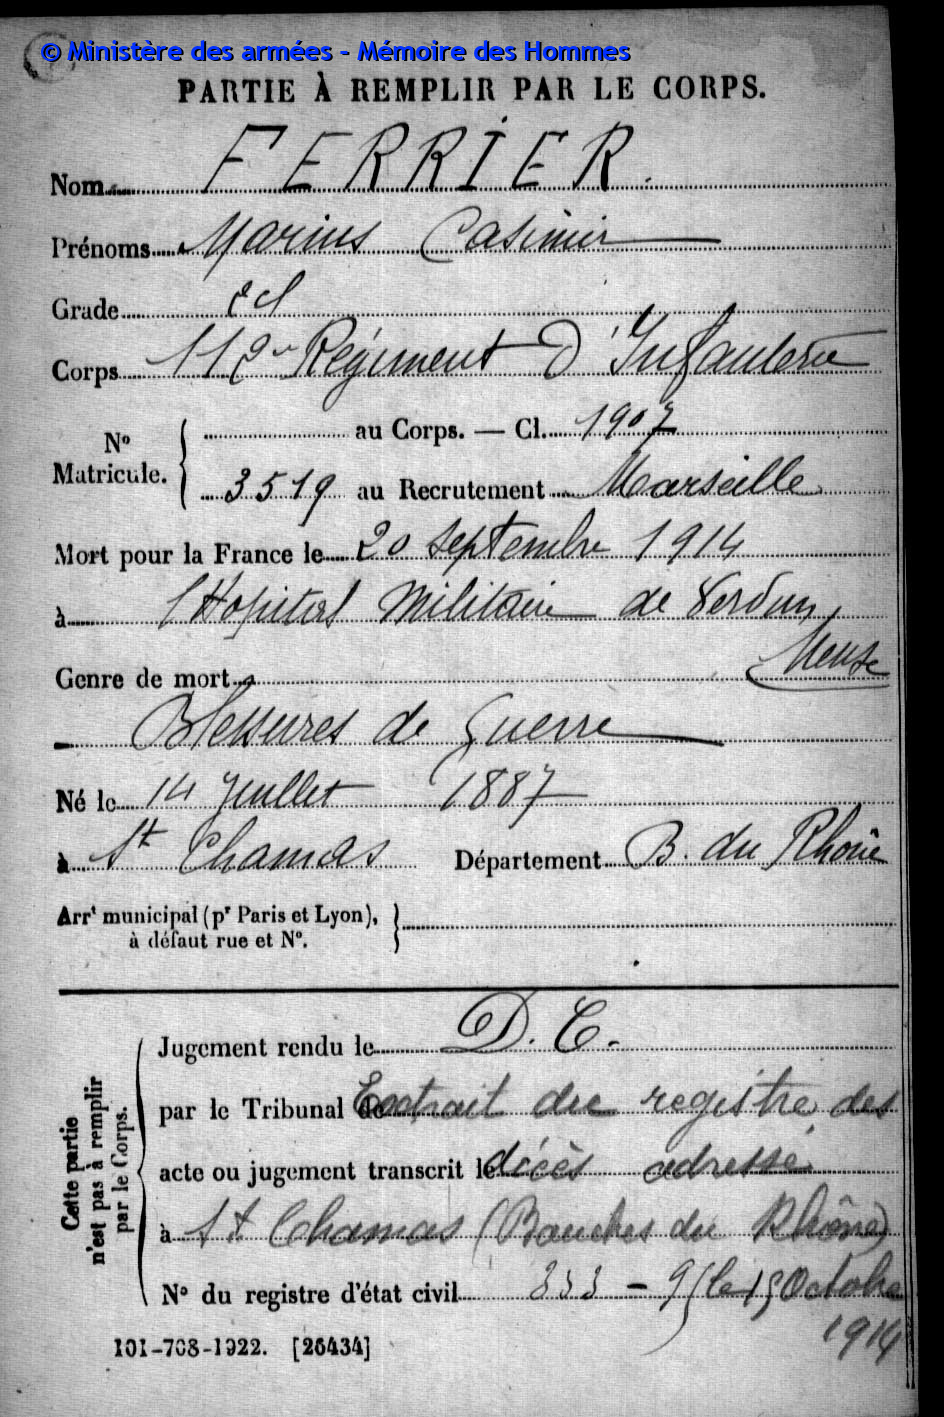 © Ministère des armées - Mémoire des Hommes
PARTIE À REMPLIR PAR LE CORPS.
Nom FERRIER.
Prénoms Marius Casimir
Grade 2 cl
Corps 112e Régiment D'Infanterie
No Matricule. { au Corps. — Cl. 1907
3519 au Recrutement Marseille
Mort pour la France le 20 septembre 1914
à l'Hopital Militaire de Verdun,
Meuse
Genre de mort
Blessures de Guerre
Né le 14 Juillet 1887
à St Chamas Département B. du Rhône
Arrt municipal (pr Paris et Lyon),
à défaut rue et No.
Cette partie n'est pas à remplir par le Corps.
Jugement rendu le D. C.
par le Tribunal de Extrait du registre des
acte ou jugement transcrit le décès adressé
à St Chamas (Bouches du Rhône)
No du registre d'état civil 333 - 95 le 15 Octobre
1914
101-708-1922. [26434]